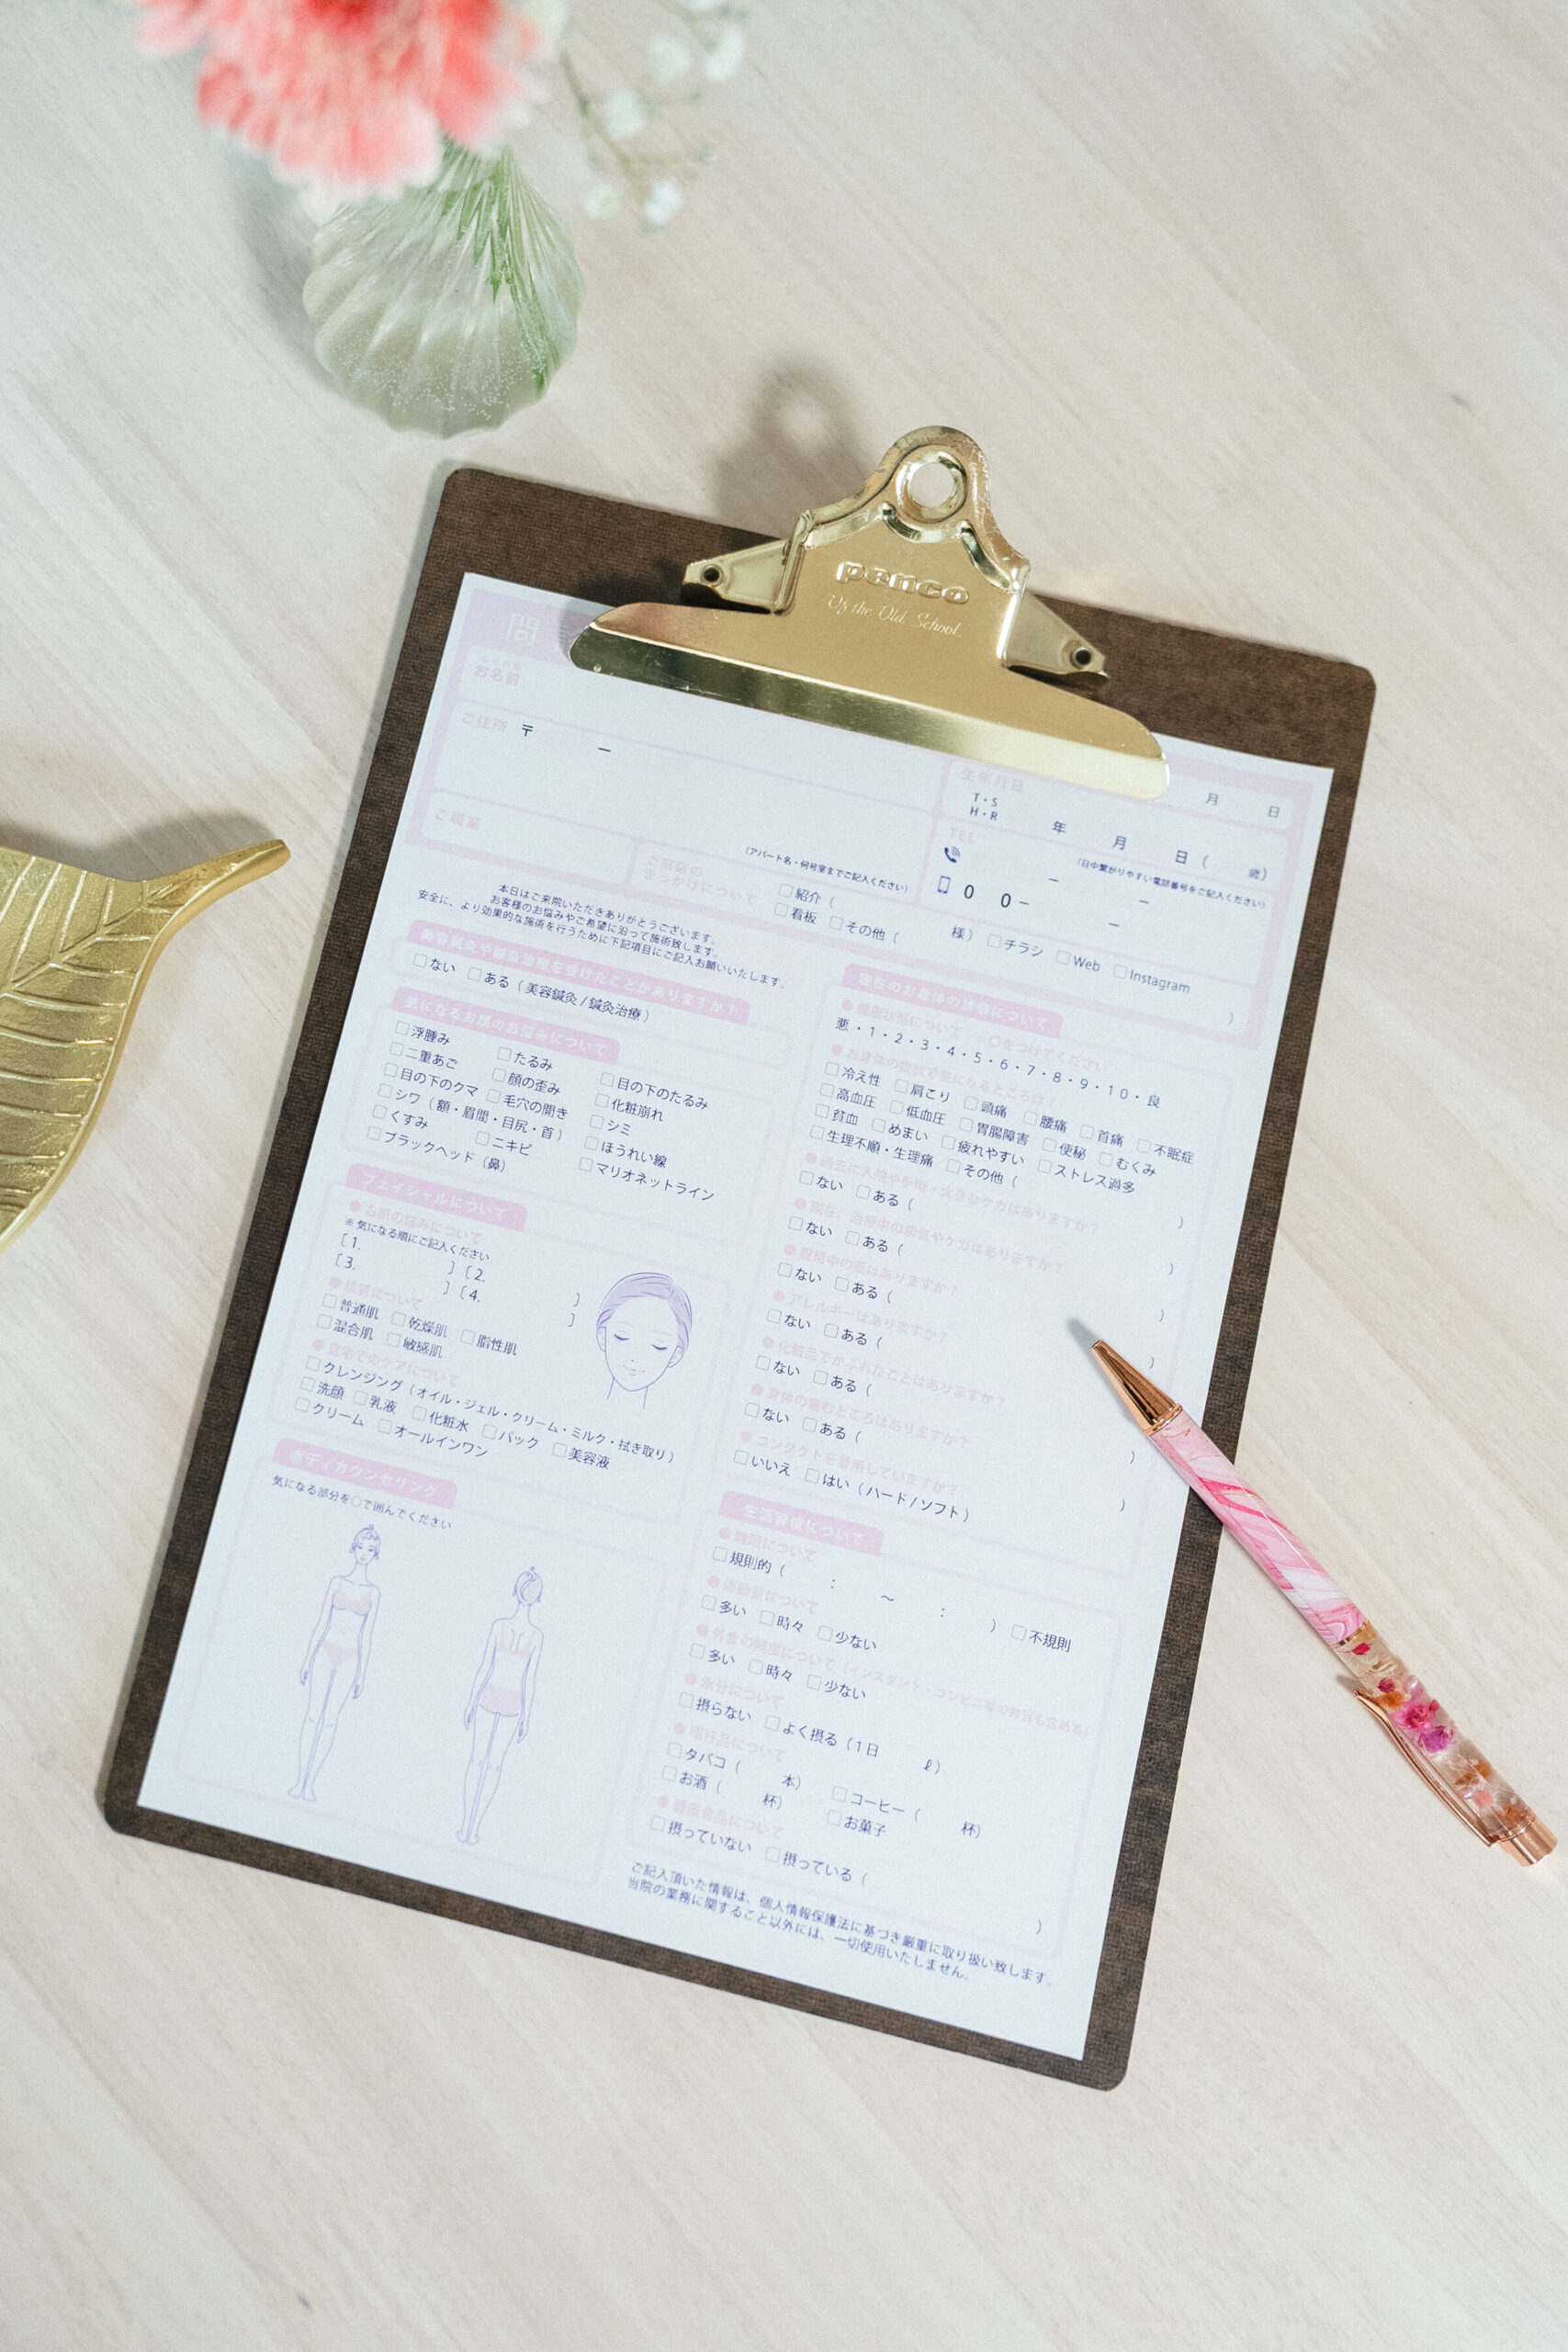 penco
Of the Old School
問
お名前
月 日
ご住所 〒 －
(アパート名・何号室までご記入ください)
生年月日
T・S
H・R
年 月 日 ( 歳)
TEL
(日中繋がりやすい電話番号をご記入ください)
－ －
0 0－ －
ご職業
ご来店の
きっかけについて
□紹介 ( 様) □チラシ □Web □Instagram
□看板 □その他 ( )
本日はご来院いただきありがとうございます。
お客様のお悩みやご希望に沿って施術致します。
安全に、より効果的な施術を行うために下記項目にご記入お願いいたします。
美容鍼灸や鍼灸治療を受けたことがありますか？
□ない □ある ( 美容鍼灸 / 鍼灸治療 )
気になるお顔のお悩みについて
□浮腫み □たるみ □目の下のたるみ
□二重あご □顔の歪み □化粧崩れ
□目の下のクマ □毛穴の開き □シミ
□シワ ( 額・眉間・目尻・首 ) □ほうれい線
□くすみ □ニキビ □マリオネットライン
□ブラックヘッド (鼻)
フェイシャルについて
●お肌の悩みについて
※ 気になる順にご記入ください
[ 1. ] [ 2. ]
[ 3. ] [ 4. ]
●肌質について
□普通肌 □乾燥肌 □脂性肌
□混合肌 □敏感肌
●自宅でのケアについて
□クレンジング ( オイル・ジェル・クリーム・ミルク・拭き取り )
□洗顔 □乳液 □化粧水 □パック □美容液
□クリーム □オールインワン
ボディカウンセリング
気になる部分を○で囲んでください
現在のお身体の状態について
●健康状態について ○をつけてください
悪・1・2・3・4・5・6・7・8・9・10・良
●お身体の症状で気になるところは？
□冷え性 □肩こり □頭痛 □腰痛 □首痛 □不眠症
□高血圧 □低血圧 □胃腸障害 □便秘 □むくみ
□貧血 □めまい □疲れやすい □ストレス過多
□生理不順・生理痛 □その他 ( )
●過去に入院や手術・大きなケガはありますか？
□ない □ある ( )
●現在、治療中の病気やケガはありますか？
□ない □ある ( )
●服用中の薬はありますか？
□ない □ある ( )
●アレルギーはありますか？
□ない □ある ( )
●化粧品でかぶれたことはありますか？
□ない □ある ( )
●身体の痛むところはありますか？
□ない □ある ( )
●コンタクトを着用していますか？
□いいえ □はい ( ハード / ソフト )
生活習慣について
●睡眠について
□規則的 ( : ～ : ) □不規則
●運動量について
□多い □時々 □少ない
●外食の頻度について (インスタント・コンビニ等の弁当も含める)
□多い □時々 □少ない
●水分について
□摂らない □よく摂る (1日 ℓ)
●嗜好品について
□タバコ ( 本) □コーヒー ( 杯)
□お酒 ( 杯) □お菓子
●健康食品について
□摂っていない □摂っている ( )
ご記入頂いた情報は、個人情報保護法に基づき厳重に取り扱い致します。
当院の業務に関すること以外には、一切使用いたしません。